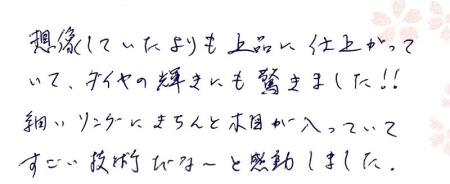 想像していたよりも上品に仕上がって
いて、ダイヤの輝きにも驚きました!!
細いリングにきちんと木目が入っていて
すごい技術だな～と感動しました.